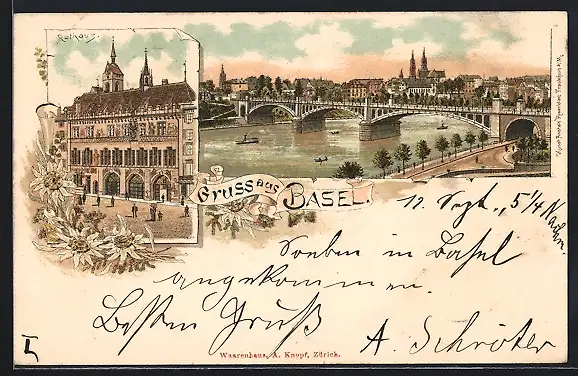 Rathaus.
Gruss aus BASEL.
12 Sept., 5 1/4 Nachm.
Soeben in Basel
angekommen.
Besten Gruß
A. Schröter
I
Waarenhaus, A. Knopf, Zürich.